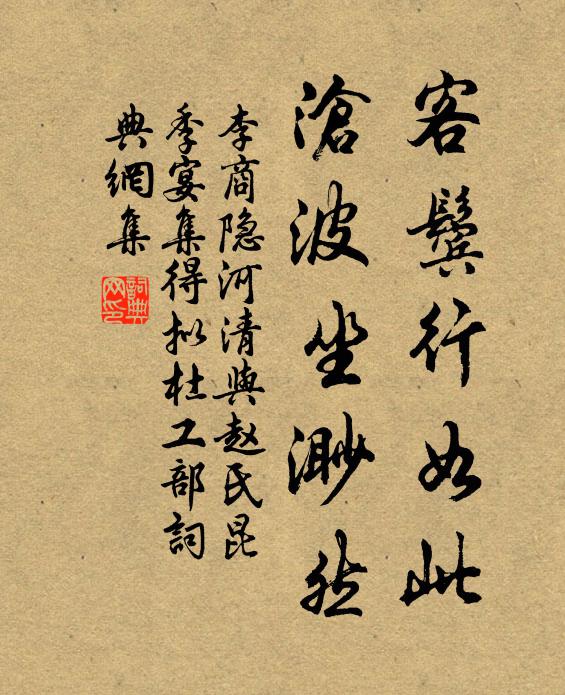 客鬓行如此
滄波坐渺然
李商隐河清與赵氏昆
季宴集得拟杜工部詞
典網集
詞典
网印